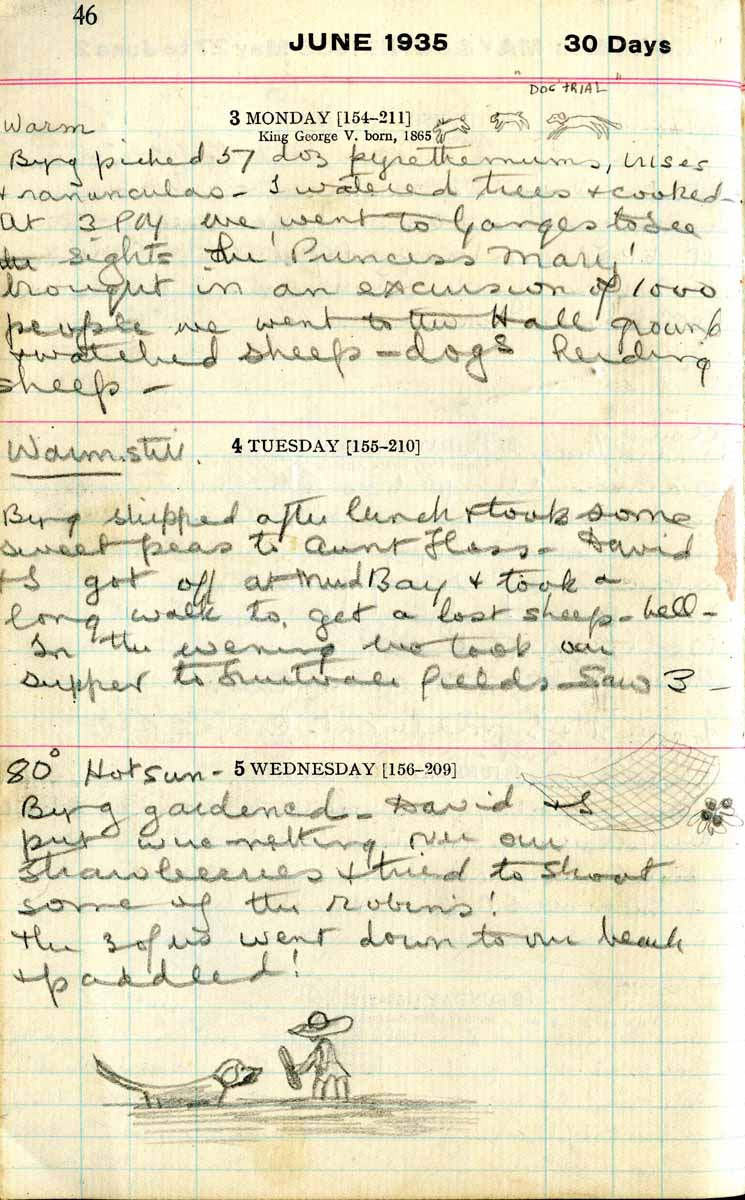 46
JUNE 1935 30 Days
"DOG TRIAL"
3 MONDAY [154–211]
Warm
King George V. born, 1865
Byrg picked 57 doz pyrethemums, irises
+ ranunculas - I watered trees + cooked -
At 3 PM we went to Ganges to see
the sights the 'Princess Mary'
brought in an excursion of 1000
people we went to the Hall ground
+ watched sheep - dogs herding
sheep -
Warm. still. 4 TUESDAY [155–210]
Byrg shipped after lunch + took some
sweet peas to Aunt Floss - David
+ I got off at Mud Bay + took a
long walk to get a lost sheep - bell -
In the evening we took our
supper to Fruitvale fields - Saw 3 -
80° Hot sun - 5 WEDNESDAY [156–209]
Byrg gardened - David + I
put wire-netting over our
strawberries + tried to shoot
some of the robins!
the 3 of us went down to our beach
+ paddled!